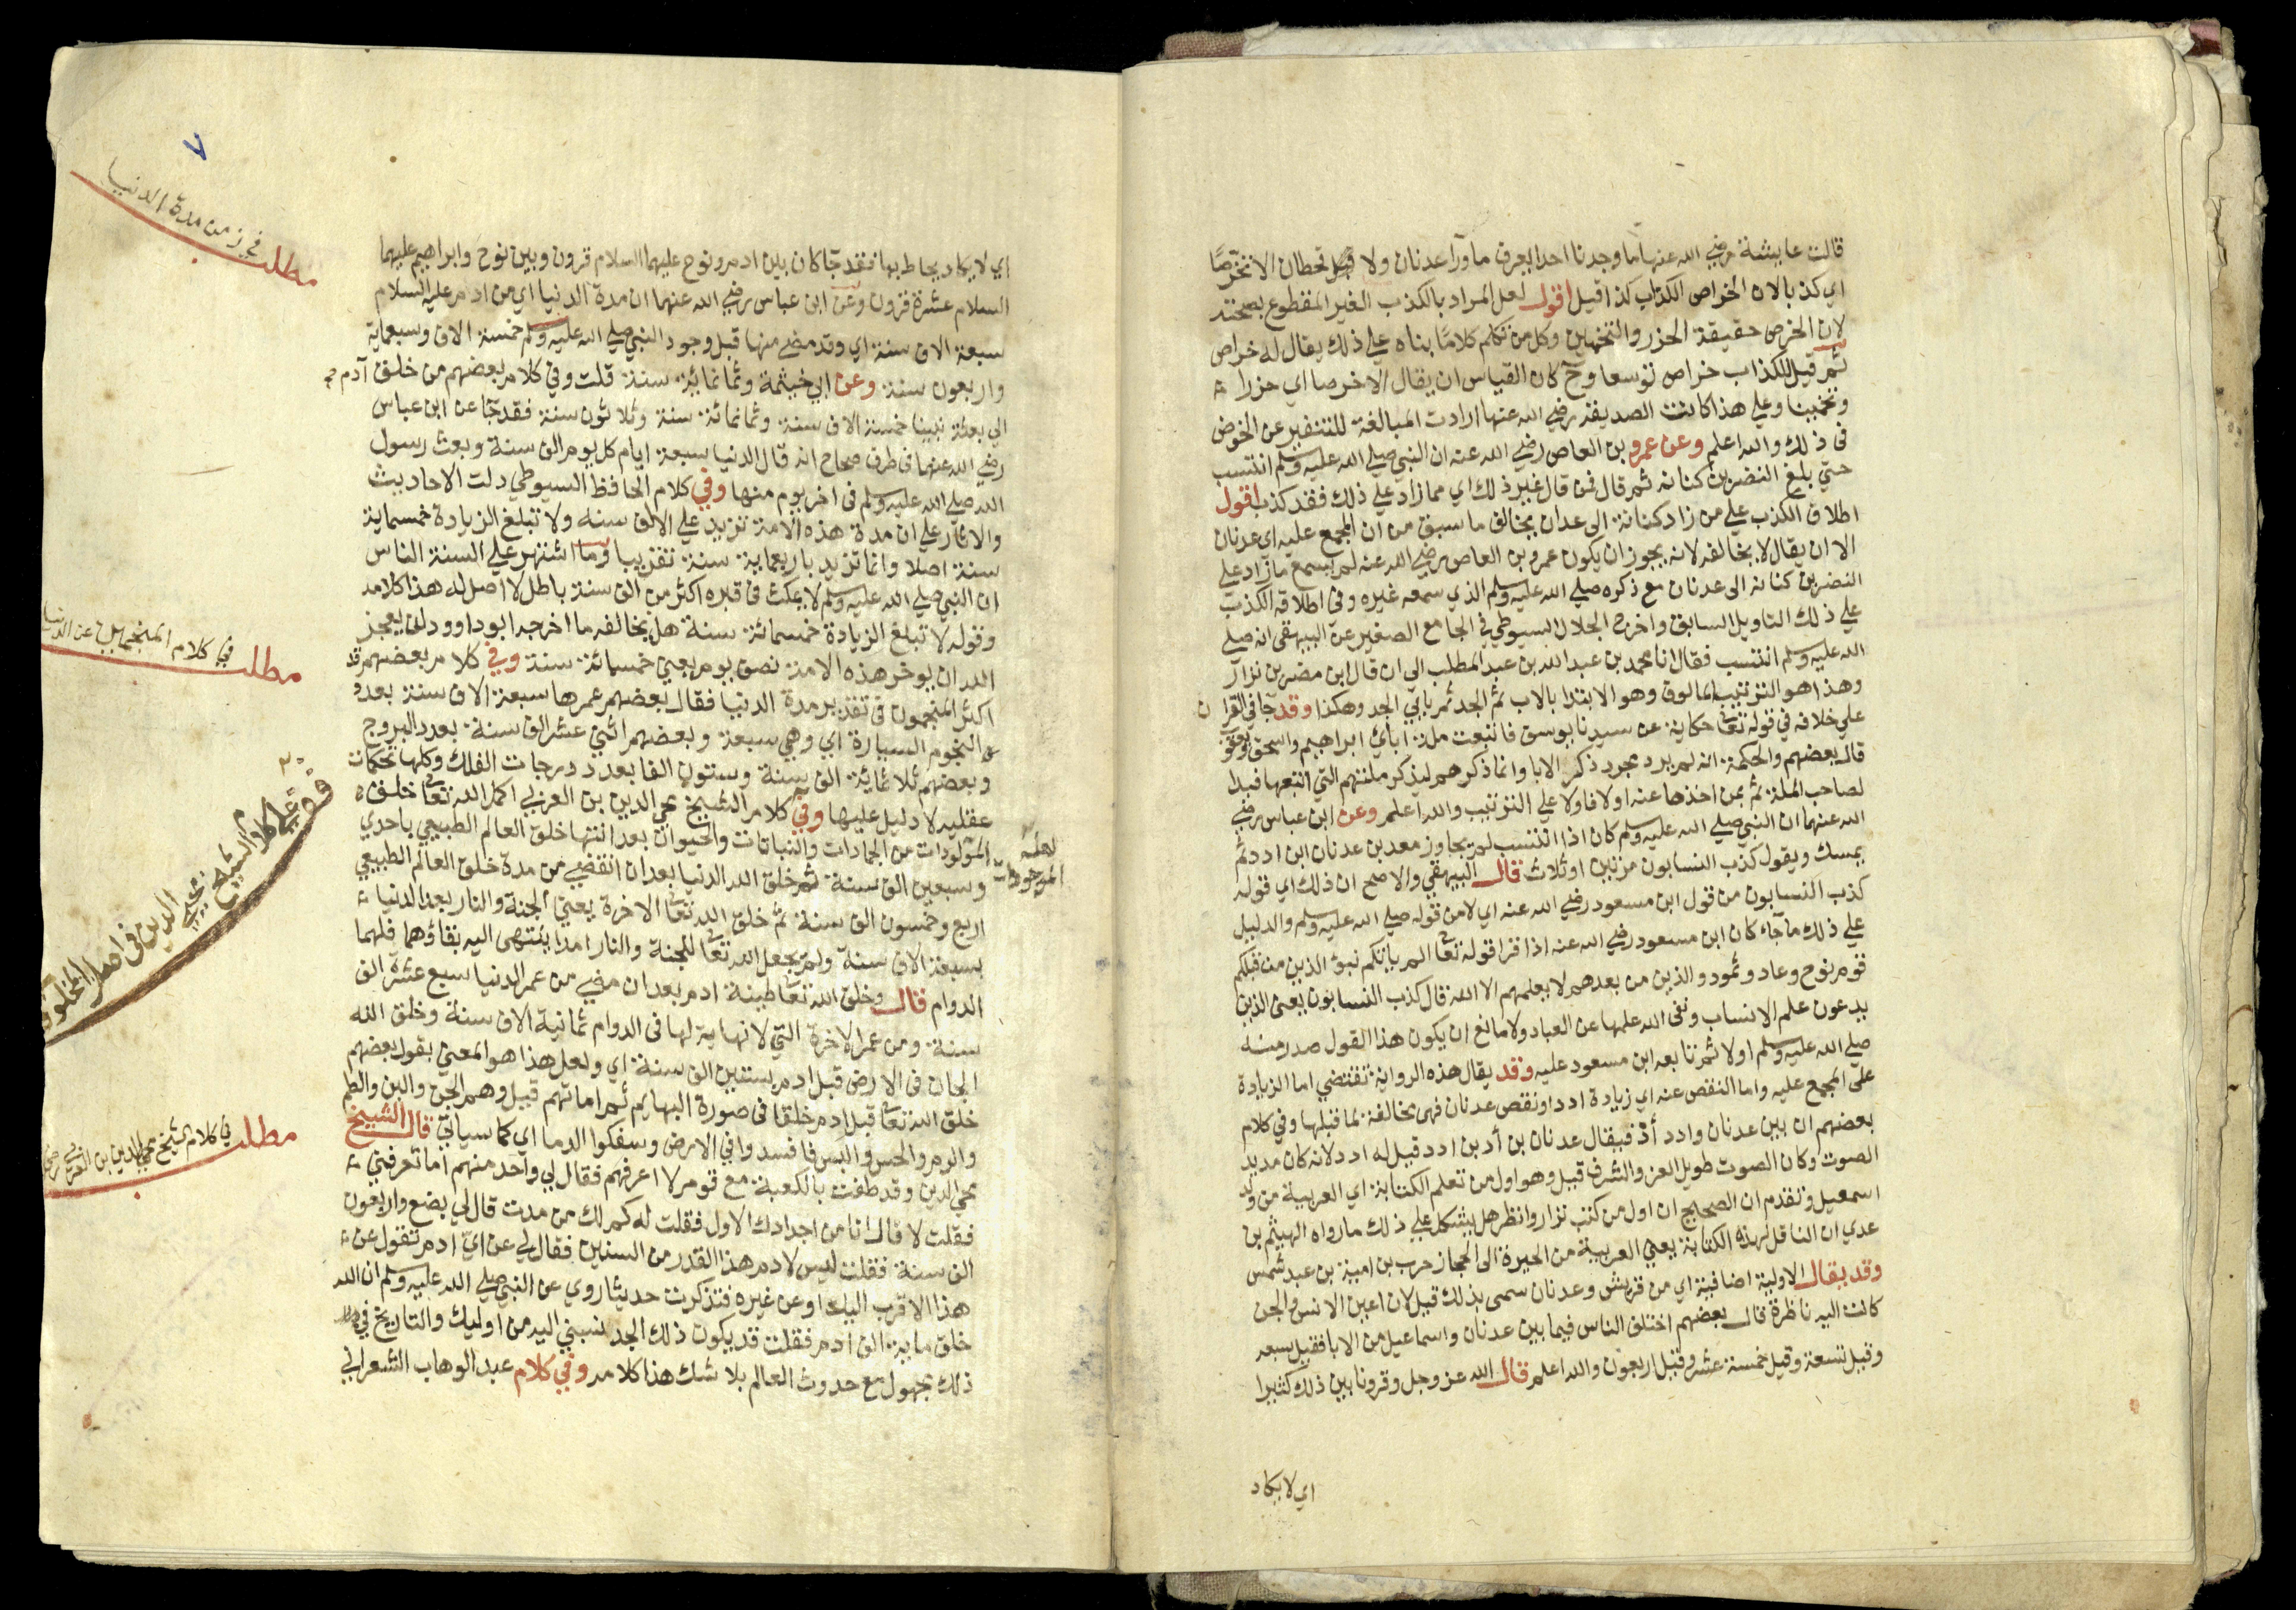 قالت عايشة رضي الله عنها ما وجدنا احدا يعرف ما ورا عدنان ولا قحطان الا تخرصا
اي كذبا لان الخراص الكذاب كذا قيل اقول لعل المراد بالكذب الغير المقطوع بصحته
لان الخرص حقيقة الحزر والتخمين وكل من تكلم كلاما بناه على ذلك يقال له خراص
ثم قيل للكذاب خراص توسعا وح كان القياس ان يقال الا خرصا اي حزرا
وتخمينا وعلى هذا كانت الصديقة رضي الله عنها ارادت المبالغة للتنفير عن الخوض
في ذلك والله اعلم وعن عمرو بن العاص رضي الله عنه ان النبي صلى الله عليه وسلم انتسب
حتى بلغ النضر بن كنانه ثم قال فمن قال غير ذلك اي مما زاد على ذلك فقد كذب اقول
اطلاق الكذب على من زاد كنانة الى عدان يخالف ما سبق من ان المجمع عليه اي عدنان
الا ان يقال لا يخالفه لانه يجوز ان يكون عمرو بن العاص رضي الله عنه لم يسمع ما زاد على
النضر بن كنانه الى عدنان مع ذكره صلى الله عليه وسلم الذي سمعه غيره وفي اطلاقه الكذب
على ذلك التاويل السابق واخرج الجلال السيوطي في الجامع الصغير عن البيهقي انه صلى
الله عليه وسلم انتسب فقال انا محمد بن عبد الله بن عبد المطلب الى ان قال ابن مضر بن نزار
وهذا هو الترتيب المالوف وهو الابتدا بالاب ثم الجد ثم بابي الجد وهكذا وقد جا في القران
على خلافه في قوله تعا حكاية عن سيدنا يوسف فاتبعت ملة اباي ابراهيم واسحق ويعقوب
قال بعضهم والحكمة انه لم يرد مجرد ذكر الابا وانما ذكرهم ليذكر ملتهم التي اتبعها فبدا
لصاحب الملة ثم بمن اخذها عنه اولا فاولا على الترتيب والله اعلم وعن ابن عباس رضي
الله عنهما ان النبي صلى الله عليه وسلم كان اذا انتسب لم يجاوز معد بن عدنان ابن ادد ثم
يمسك ويقول كذب النسابون مرتين او ثلاث قال البيهقي والاصح ان ذلك اي قوله
كذب النسابون من قول ابن مسعود رضي الله عنه اي لا من قوله صلى الله عليه وسلم والدليل
على ذلك ما جآء كان ابن مسعود رضي الله عنه اذا قرا قوله تعا الم ياتكم نبؤ الذين من قبلكم
قوم نوح وعاد وثمود والذين من بعدهم لا يعلمهم الا الله قال كذب النسابون يعنى الذين
يدعون علم الانساب ونفى الله علمها عن العباد ولا مانع ان يكون هذا القول صدر منه
صلى الله عليه وسلم اولا ثم تابعه ابن مسعود عليه وقد يقال هذه الرواية تقتضي اما الزيادة
على المجمع عليه واما النقص عنه اي زيادة ادد او نقص عدنان فهى مخالفة لما قبلها وفي كلام
بعضهم ان بين عدنان وادد أد فيقال عدنان بن أد بن ادد قيل له ادد لانه كان مديد
الصوت وكان الصوت طويل العز والشرف قيل وهو اول من تعلم الكتابة اي العربية من ولد
اسمعيل وتقدم ان الصحيح ان اول من كتب نزار وانظر هل يشكل على ذلك ما رواه الهيثم بن
عدي ان الناقل لهذه الكتابة يعني العربية من الحيرة الى الحجاز حرب بن امية بن عبد شمس
وقد يقال الاولية اضافية اي من قريش وعدنان سمى بذلك قيل لان اعين الانس والجن
كانت اليه ناظرة قال بعضهم اختلف الناس فيما بين عدنان واسماعيل من الابا فقيل سبعه
وقيل تسعة وقيل خمسة عشر وقيل اربعون والله اعلم قال الله عز وجل وقرونا بين ذلك كثيرا
اي لا يكاد
٧
اي لا يكاد يحاط بها فقد جآ كان بين ادم ونوح عليهما السلام قرون وبين نوح وابراهيم عليهما
السلام عشرة قرون وعن ابن عباس رضي الله عنهما ان مدة الدنيا اي من ادم عليه السلام
سبعة الاف سنة اي وقد مضى منها قبل وجود النبي صلى الله عليه وسلم خمسة الاف وسبعماية
واربعون سنة وعن ابي خيثمة وثمانمائة سنة قلت وفي كلام بعضهم من خلق آدم
الى بعثة نبينا خمسة الاف سنة وثمانمائة سنة وثلاثون سنة فقد جآ عن ابن عباس
رضي الله عنهما في طرق صحاح انه قال الدنيا سبعة ايام كل يوم الف سنة وبعث رسول
الله صلى الله عليه وسلم في اخر يوم منها وفي كلام الحافظ السيوطي دلت الاحاديث
والاثار على ان مدة هذه الامة تزيد على الالف سنه ولا تبلغ الزيادة خمسماية
سنة اصلا وانما تزيد باربعماية سنة تقريبا وما اشتهر على السنة الناس
ان النبي صلى الله عليه وسلم لا يمكث في قبره اكثر من الف سنة باطل لا اصل له هذا كلامه
وقوله لا تبلغ الزيادة خمسمائة سنة هل يخالفه ما اخرجه ابو داوود لن يعجز
الله ان يوخر هذه الامة نصف يوم يعني خمسمائة سنة وفي كلام بعضهم قد
اكثر المنجمون في تقدير مدة الدنيا فقال بعضهم عمرها سبعة الاف سنة بعدد
النجوم السيارة اي وهي سبعة وبعضهم اثني عشر الف سنة بعدد البروج
وبعضهم ثلاثمائة الف سنة وستون الفا بعدد درجات الفلك وكلها تحكمات
عقليه لا دليل عليها وفي كلام الشيخ محي الدين بن العربي اكمل الله تعا خلق
المولودات من الجمادات والنباتات والحيوان بعد انتها خلق العالم الطبيعي باحدي
وسبعين الف سنة ثم خلق الله الدنيا بعد ان انقضى من مدة خلق العالم الطبيعي
اربع وخمسون الف سنة ثم خلق الله تعا الاخرة يعني الجنة والنار بعد الدنيا
بسبعة الاف سنة ولم يجعل الله تعا للجنة والنار امدا ينتهى اليه بقاؤهما فلهما
الدوام قال وخلق الله تعا طينة ادم بعد ان مضى من عمر الدنيا سبع عشرة الف
سنة ومن عمر الاخرة التي لا نهاية لها في الدوام ثمانية الاف سنة وخلق الله
الجان في الارض قبل ادم بستين الف سنة اي ولعل هذا هو المعني بقول بعضهم
خلق الله تعا قبل ادم خلقا في صورة البهايم ثم اماتهم قيل وهم الجن والبن والطم
والرم والحس والبس فافسدوا في الارض وسفكوا الدما اي كما سياتي قال الشيخ
محي الدين وقد طفت بالكعبة مع قوم لا اعرفهم فقال لي واحد منهم اما تعرفني
فقلت لا قال انا من اجدادك الاول فقلت له كم لك من مدت قال لي بضع واربعون
الف سنة فقلت ليس لادم هذا القدر من السنين فقال لي عن اي ادم تقول عن
هذا الاقرب اليك او عن غيره فتذكرت حديثا روي عن النبي صلى الله عليه وسلم ان الله
خلق ماية الف ادم فقلت قد يكون ذلك الجد نسبني اليه من اوليك والتاريخ في
ذلك مجهول مع حدوث العالم بلا شك هذا كلامه وفي كلام عبد الوهاب الشعراني
مطلب في زمن مدة الدنيا
مطلب في كلام المنجمين عن الدنيا
قف على كلام الشيخ محي الدين في اصل المخلوق
مطلب في كلام الشيخ محي الدين بن العربي
لعله الموجودات